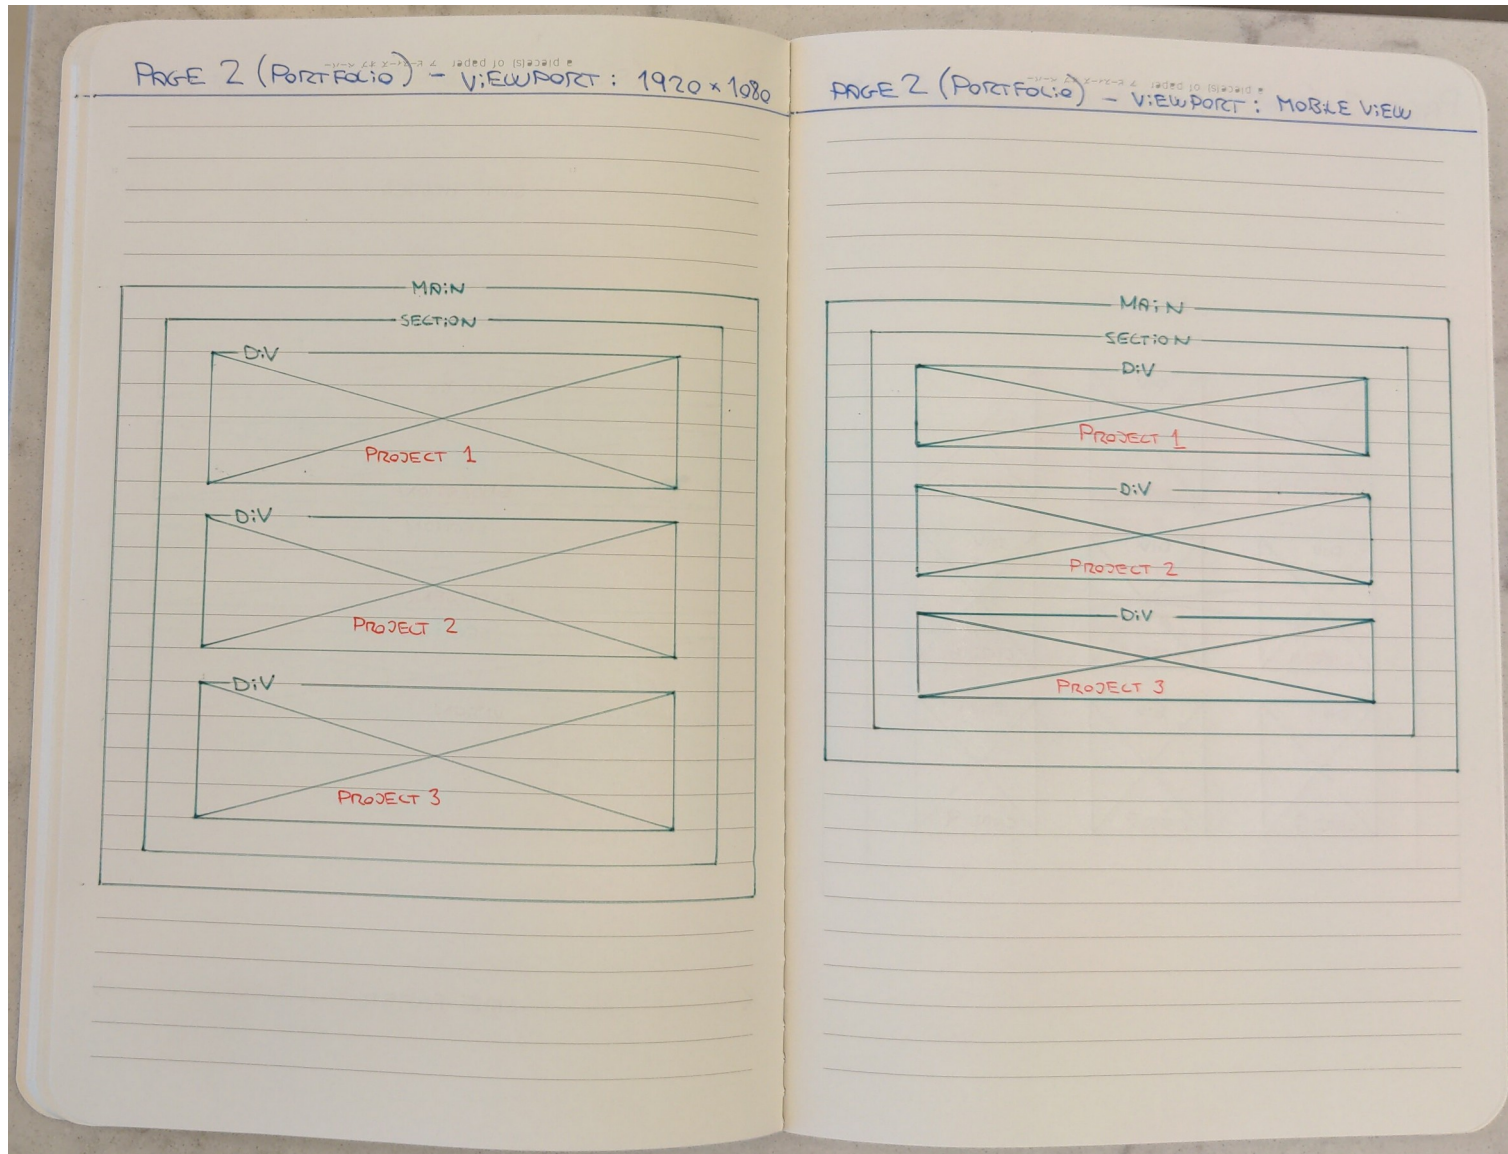 PAGE 2 (PORTFOLiO) - ViEWPORT : 1920 x 1080
a piece(s) of paper
MAiN
SECTiON
DiV
PROJECT 1
DiV
PROJECT 2
DiV
PROJECT 3
PAGE 2 (PORTFOLiO) - ViEWPORT : MOBiLE ViEW
a piece(s) of paper
MAiN
SECTiON
DiV
PROJECT 1
DiV
PROJECT 2
DiV
PROJECT 3